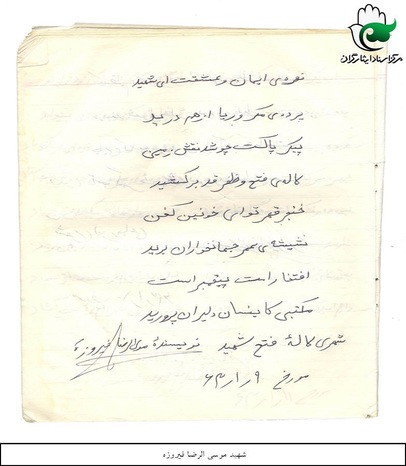 مرکز اسناد ایثارگران
نعره‌ی ایمان و عشقت ای شهید
پرده‌ی مکر و ریا از هم درید
پیکر پاکت چو شد نقش زمین
لاله‌ی فتح و ظفر قد برکشید
خنجر قهر تو ای خونین کفن
شیشه‌ی عمر جهانخواران برید
افتخار است پیغمبر است
مکتبی کاینسان دلیران پرورید
شعری لالهٔ فتح شهید نویسنده موسی الرضا فیروزه
مورخ ۹ر۱ر۶۳
شهید موسی الرضا فیروزه